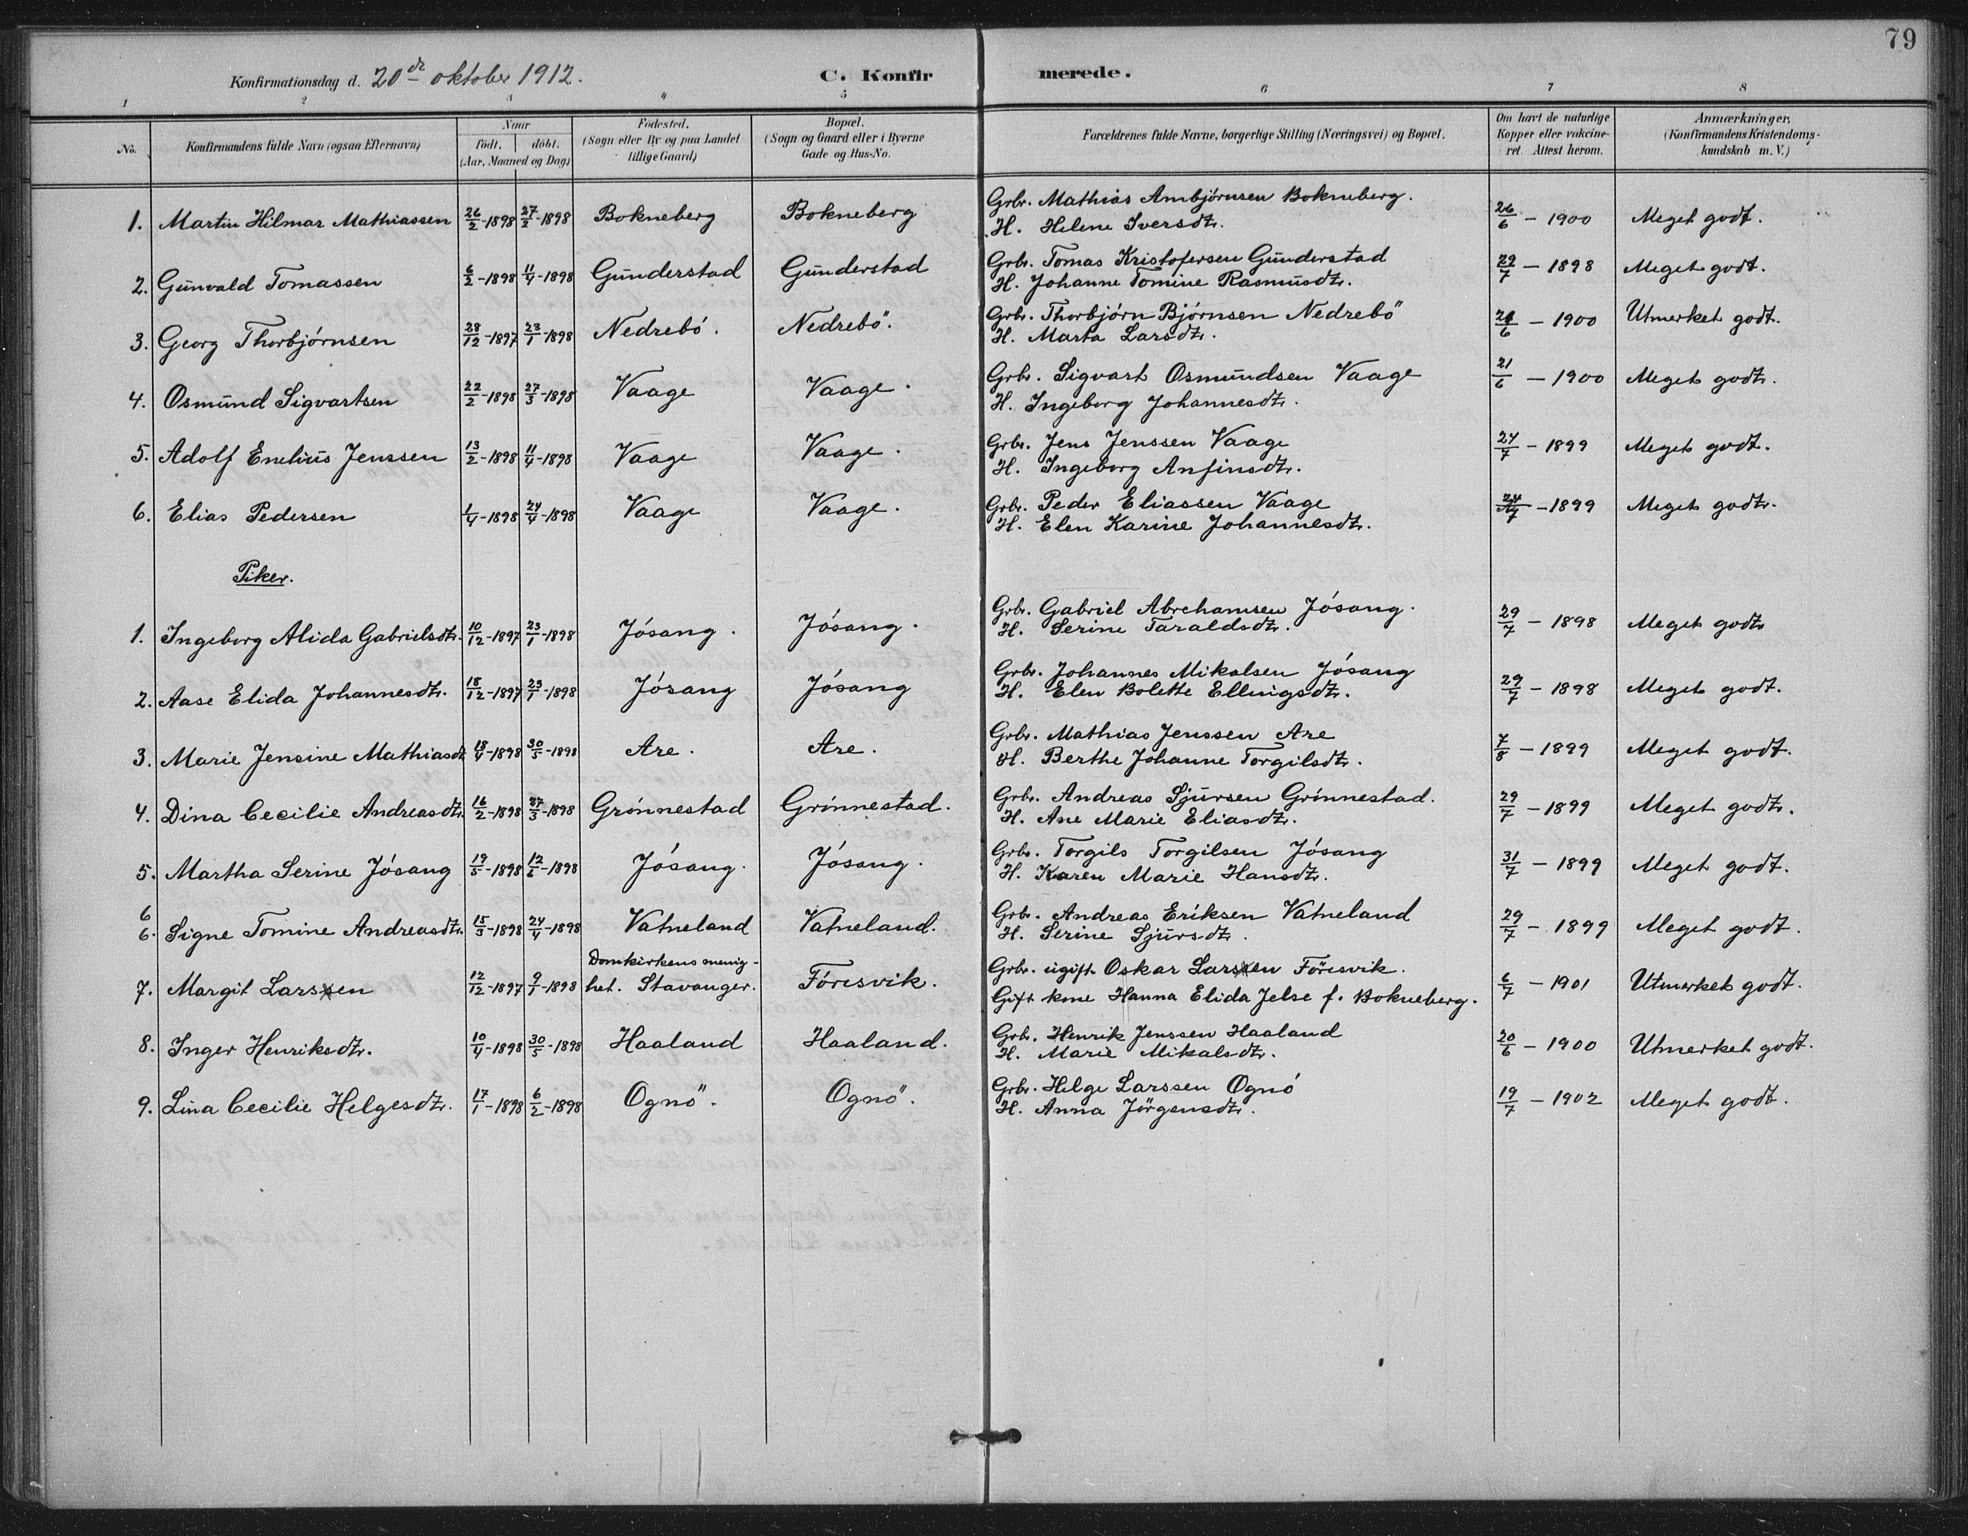 79
Konfirmationsdag d. 20de oktober 1912. C. Konfirmerede.
1 2 3 4 5 6 7 8
No. Konfirmandens fulde Navn (ogsaa Efternavn) Naar født, døbt. (Aar, Maaned og Dag) Fødested. (Sogn eller By og paa Landet tillige Gaard) Bopæl. (Sogn og Gaard eller i Byerne Gade og Hus-No. Forældrenes fulde Navne, borgerlige Stilling (Næringsvei) og Bopæl. Om havt de naturlige Kopper eller vakcineret. Attest herom. Anmærkninger. (Konfirmandens Kristendomskundskab m. V.)
1. Martin Hilmar Mathiassen 26/2-1898 27/2-1898 Bokneberg Bokneberg Grbr. Mathias Ambjørnsen Bokneberg. 26/6 - 1900 Meget godt.
H. Helene Iversdtr.
2. Gunvald Tomassen 6/2-1898 11/4-1898 Gunderstad Gunderstad Grbr. Tomas Kristofersen Gunderstad 29/7 - 1898 Meget godt.
H. Johanne Tomine Rasmusdtr.
3. Georg Thorbjørnsen 28/12-1897 23/1-1898 Nedrebö. Nedrebö. Grbr. Thorbjörn Bjørnsen Nedrebö 21/6 - 1900 Utmerket godt.
H. Marta Larsdtr.
4. Osmund Sigvartsen 22/2-1898 27/3-1898 Vaage Vaage. Grbr. Sigvart Osmundsen Vaage 21/6 - 1900 Meget godt.
H. Ingeborg Johannesdtr.
5. Adolf Enelius Jenssen 13/2-1898 11/4-1898 Vaage Vaage. Grbr. Jens Jenssen Vaage 24/7 - 1899 Meget godt.
H. Ingeborg Anfinsdtr.
6. Elias Pedersen 1/4-1898 24/4-1898 Vaage Vaage. Grbr. Peder Eliassen Vaage 24/7 - 1899 Meget godt.
H. Elen Karine Johannesdtr.
Piker.
1. Ingeborg Alida Gabrielsdtr. 10/12-1897 23/1-1898 Jósang. Jósang. Grbr. Gabriel Abrehamsen Jósang. 29/7 - 1898 Meget godt
H. Serine Taraldsdtr.
2. Aase Elida Johannesdtr. 18/12-1897 23/1-1898 Jósang Jósang Grbr. Johannes Mikalsen Jósang 29/7 - 1898 Meget godt.
H. Elen Bolette Ellingsdtr.
3. Marie Jensine Mathiasdt 18/4-1898 30/5-1898 Are. Are. Grbr. Mathias Jenssen Are 7/8 - 1899 Meget godt.
H. Berthe Johanne Torgilsdtr.
4. Dina Cecilie Andreasdtr. 16/2-1898 27/3-1898 Grónnestad Grónnestad. Grbr. Andreas Sjursen Grónnestad. 29/7 - 1899 Meget godt.
H. Ane Marie Eliasdtr.
5. Martha Serine Jósang 19/5-1898 12/6-1898 Jósang. Jósang. Grbr. Torgils Torgilsen Jósang 31/7 - 1899 Meget godt.
H. Karen Marie Hansdtr.
6
6. Signe Tomine Andreasdtr. 15/3-1898 24/4-1898 Vatneland Vatneland. Grbr. Andreas Eriksen Vatneland 29/7 - 1899 Meget godt.
H. Serine Sjursdtr.
7. Margit Larssen 12/12-1897 9/1-1898 Domkirkens menighet. Stavanger. Fóresvik. Grbr. ugift Oskar Larssen Föresvik. 6/7 - 1901 Utmerket godt.
Gift kone Hanna Elida Jelse f. Bokneberg.
8. Inger Henriksdtr. 10/4-1898 30/5-1898 Haaland Haaland. Grbr. Henrik Jenssen Haaland 20/6 - 1900 Utmerket godt.
H. Marie Mikalsdtr.
9. Lina Cecilie Helgesdtr. 17/1-1898 6/2-1898 Ognö. Ognö. Grbr. Helge Larssen Ognó 19/7 - 1902 Meget godt.
H. Anna Jörgensdtr.